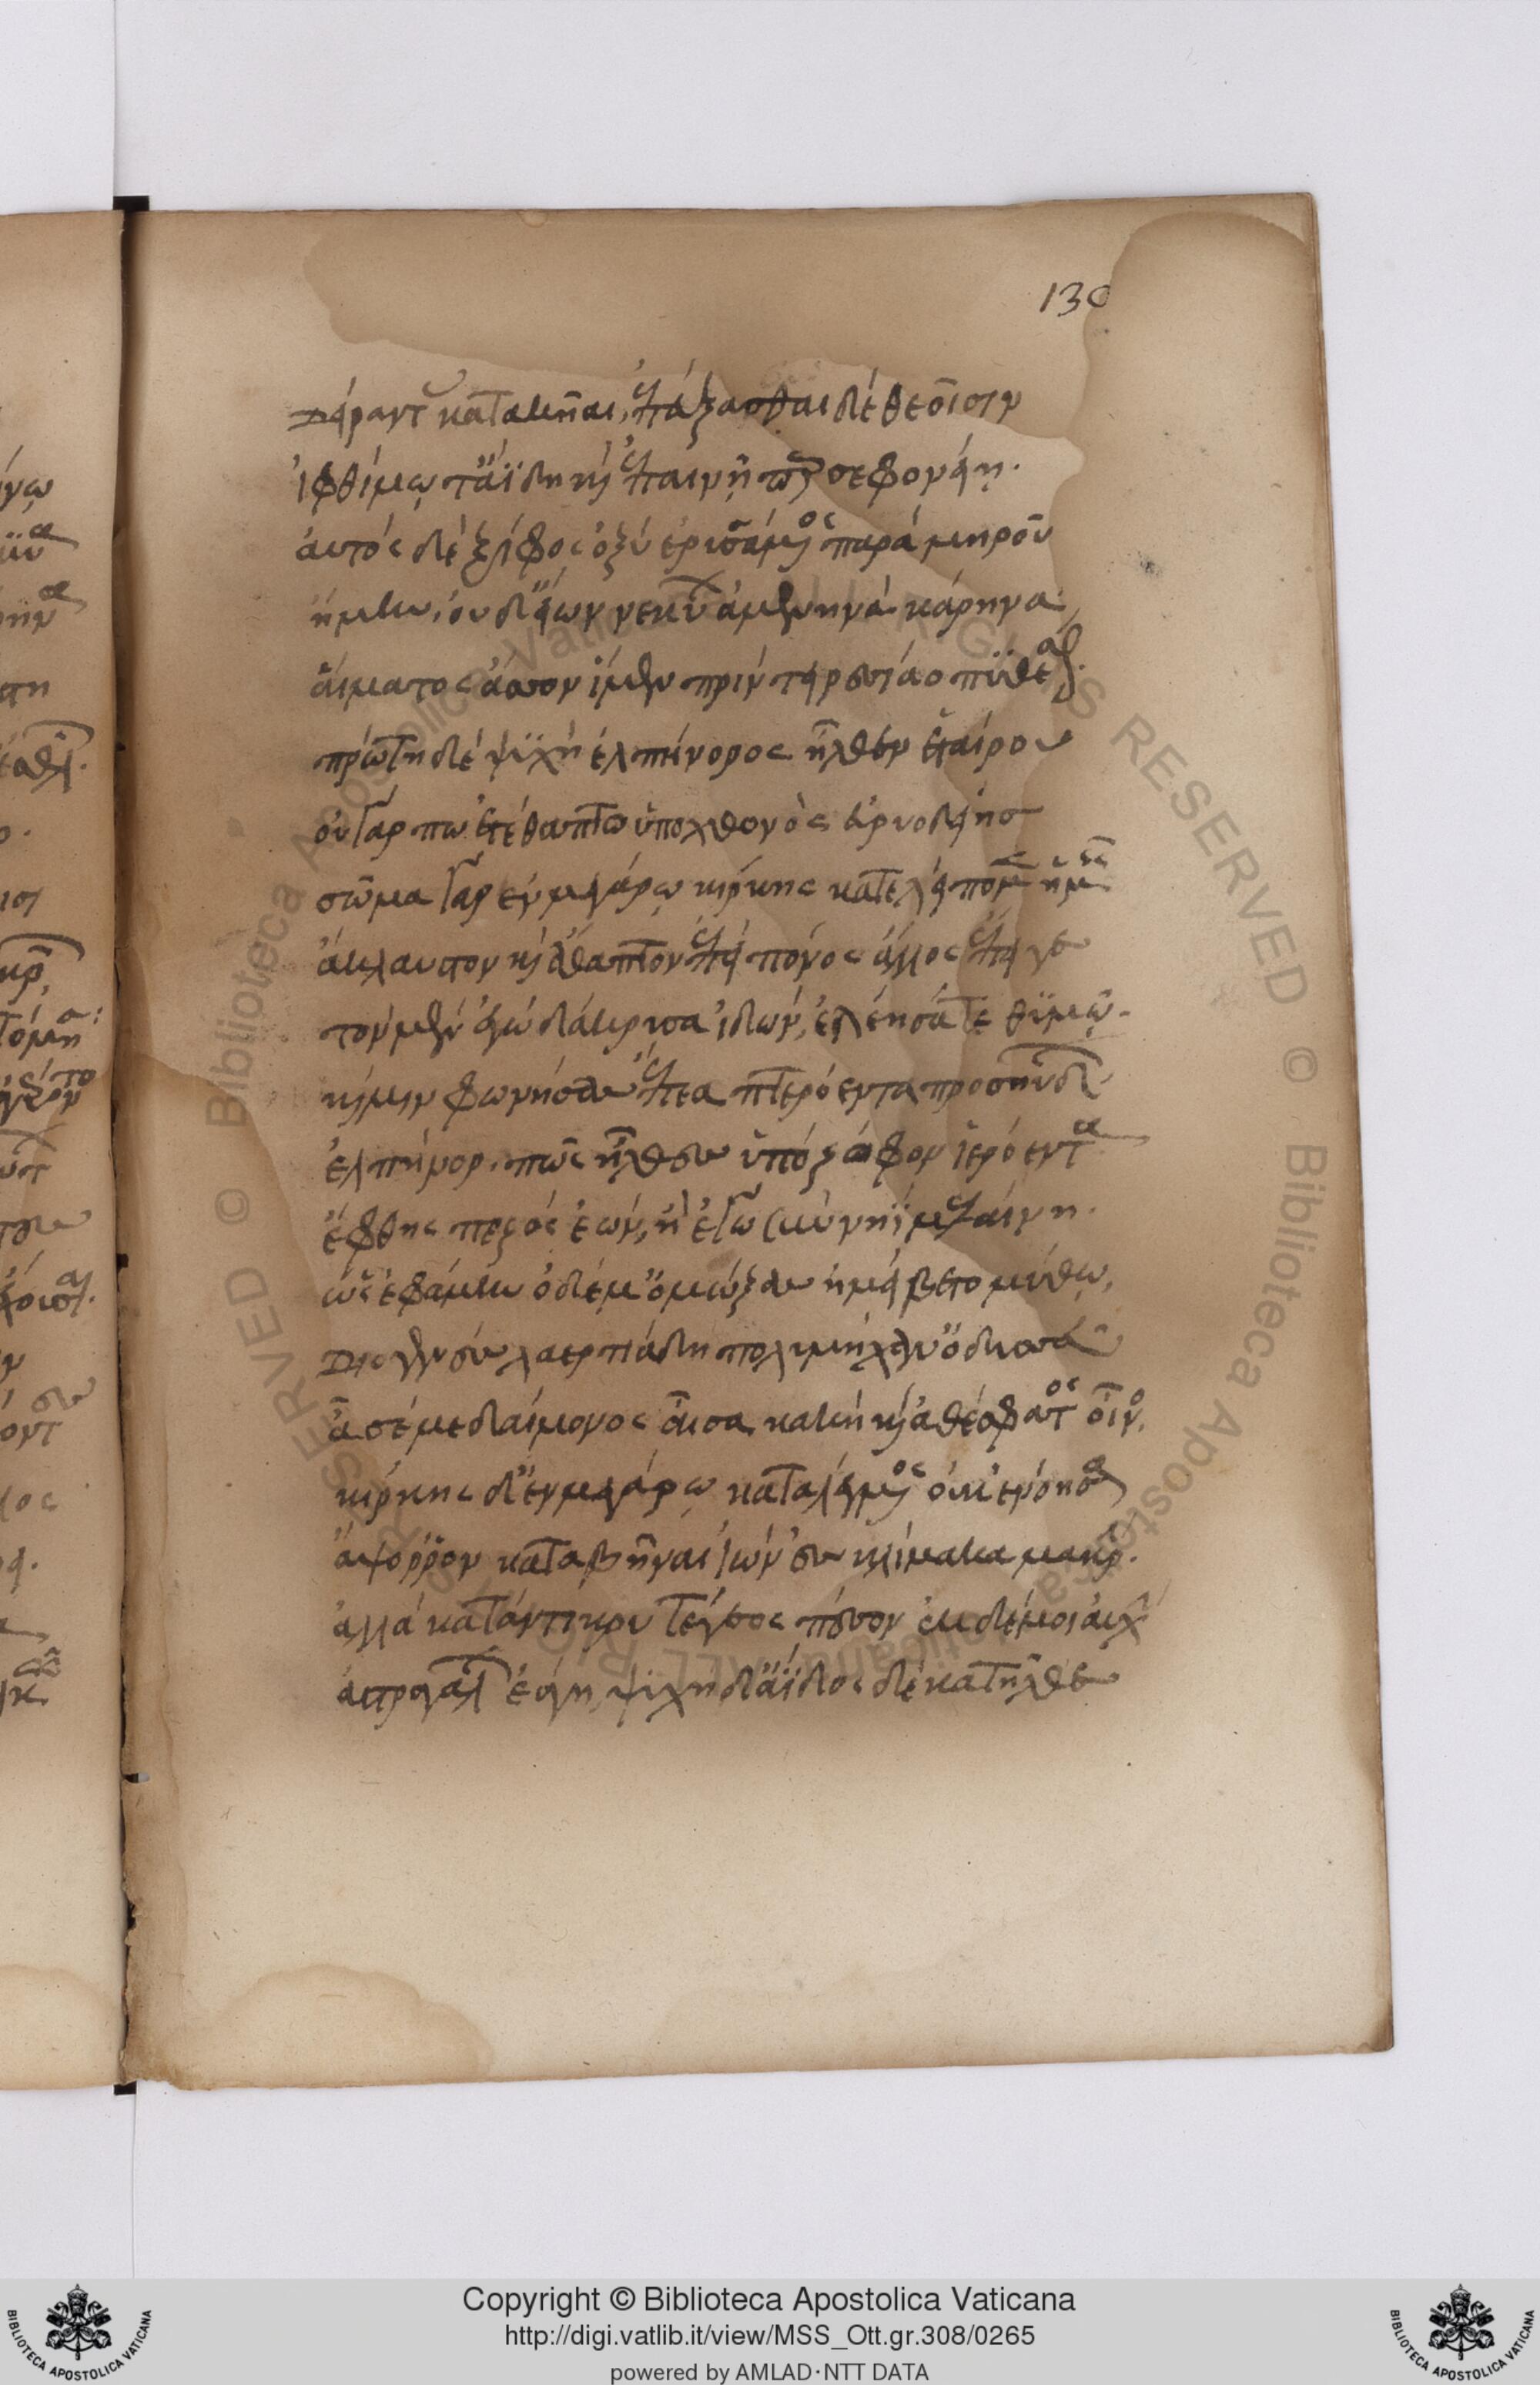 130
δείραντας κατακῆαι, ἐπεύξασθαι δὲ θεοῖσιν
ἰφθίμω τ' ἀΐδη καὶ ἐπαινῆ περσεφονείη.
αὐτὸς δὲ ξίφος ὀξὺ ἐρυσάμενος παρὰ μηροῦ
ἥμην, οὐδ' εἴων νεκύων ἀμενηνὰ κάρηνα,
αἵματος ἄσσον ἴμεν πρὶν τειρεσίαο πυθέσθαι.
πρώτη δὲ ψυχὴ ἐλπήνορος ἦλθεν ἑταίρου
οὐ γάρ πω ἐτέθαπτο ὑπὸ χθονὸς εὐρυοδείης
σῶμα γὰρ ἐν μεγάρω κίρκης κατελείπομεν ἡμεῖς
ἄκλαυτον καὶ ἄθαπτον ἐπεὶ πόνος ἄλλος ἔπειγε
τὸν μὲν ἐγὼ δάκρυσα ἰδών, ἐλέησά τε θυμῶ.
καί μιν φωνήσας ἔπεα πτερόεντα προσηύδων
ἐλπῆνορ. πῶς ἦλθες ὑπὸ ζόφον ἠερόεντα
ἔφθης πεζὸς ἐών, ἢ ἐγὼ σὺν νηῒ μελαίνη.
ὣς ἐφάμην ὁ δέ μ' οἰμώξας ἠμείβετο μύθω,
διογενὲς λαερτιάδη πολυμήχαν' ὀδυσσεῦ
ἆσέ με δαίμονος αἶσα κακὴ καὶ ἀθέσφατος οἶνος.
κίρκης δ' ἐν μεγάρω καταλέγμενος οὐκ ἐνόησα
ἄψορρον καταβῆναι ἰὼν ἐς κλίμακα μακρήν.
ἀλλὰ καταντικρὺ τέγεος πέσον ἐκ δέ μοι αὐχὴν
ἀστραγάλων ἐάγη, ψυχὴ δ' ἄϊδος δὲ κατῆλθε
Copyright © Biblioteca Apostolica Vaticana
http://digi.vatlib.it/view/MSS_Ott.gr.308/0265
powered by AMLAD·NTT DATA